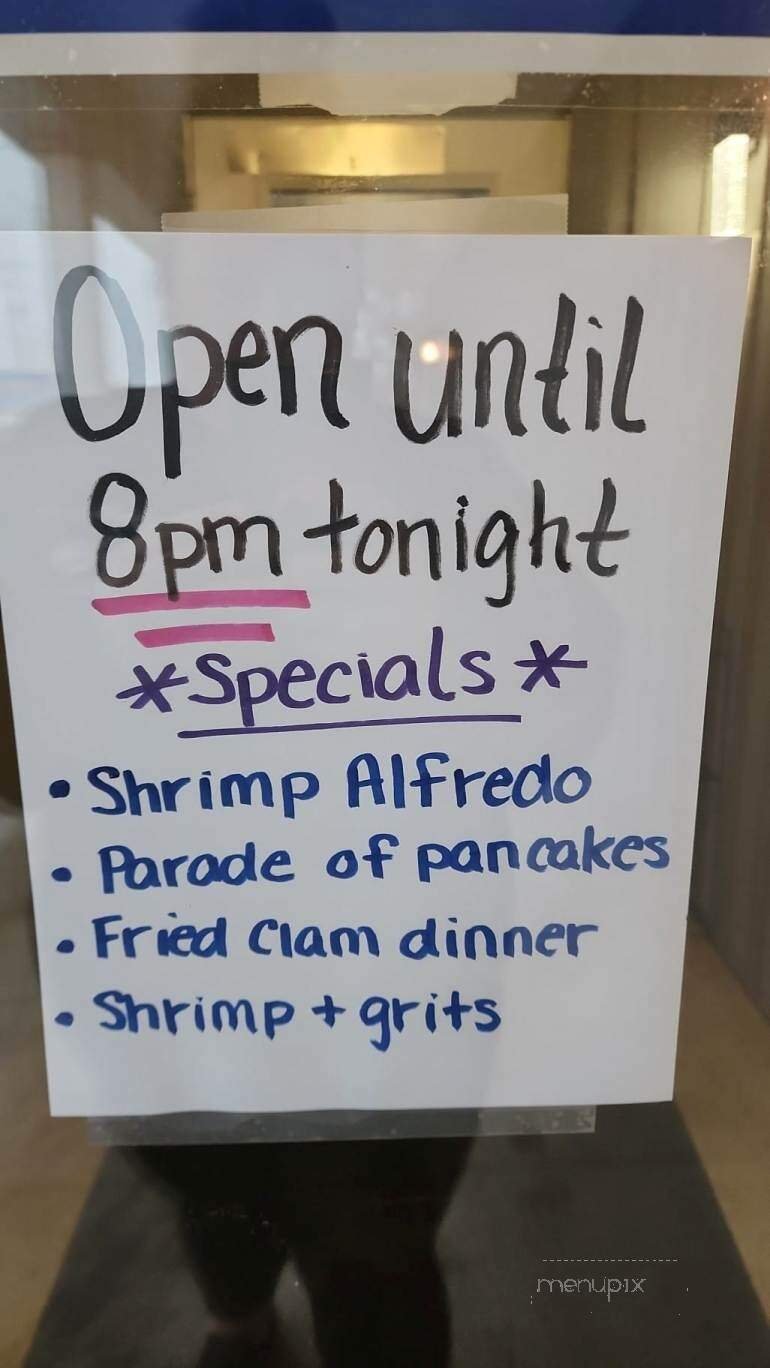 Open until
8pm tonight
*Specials*
• Shrimp Alfredo
• Parade of pancakes
• Fried Clam dinner
• Shrimp + grits
menupix